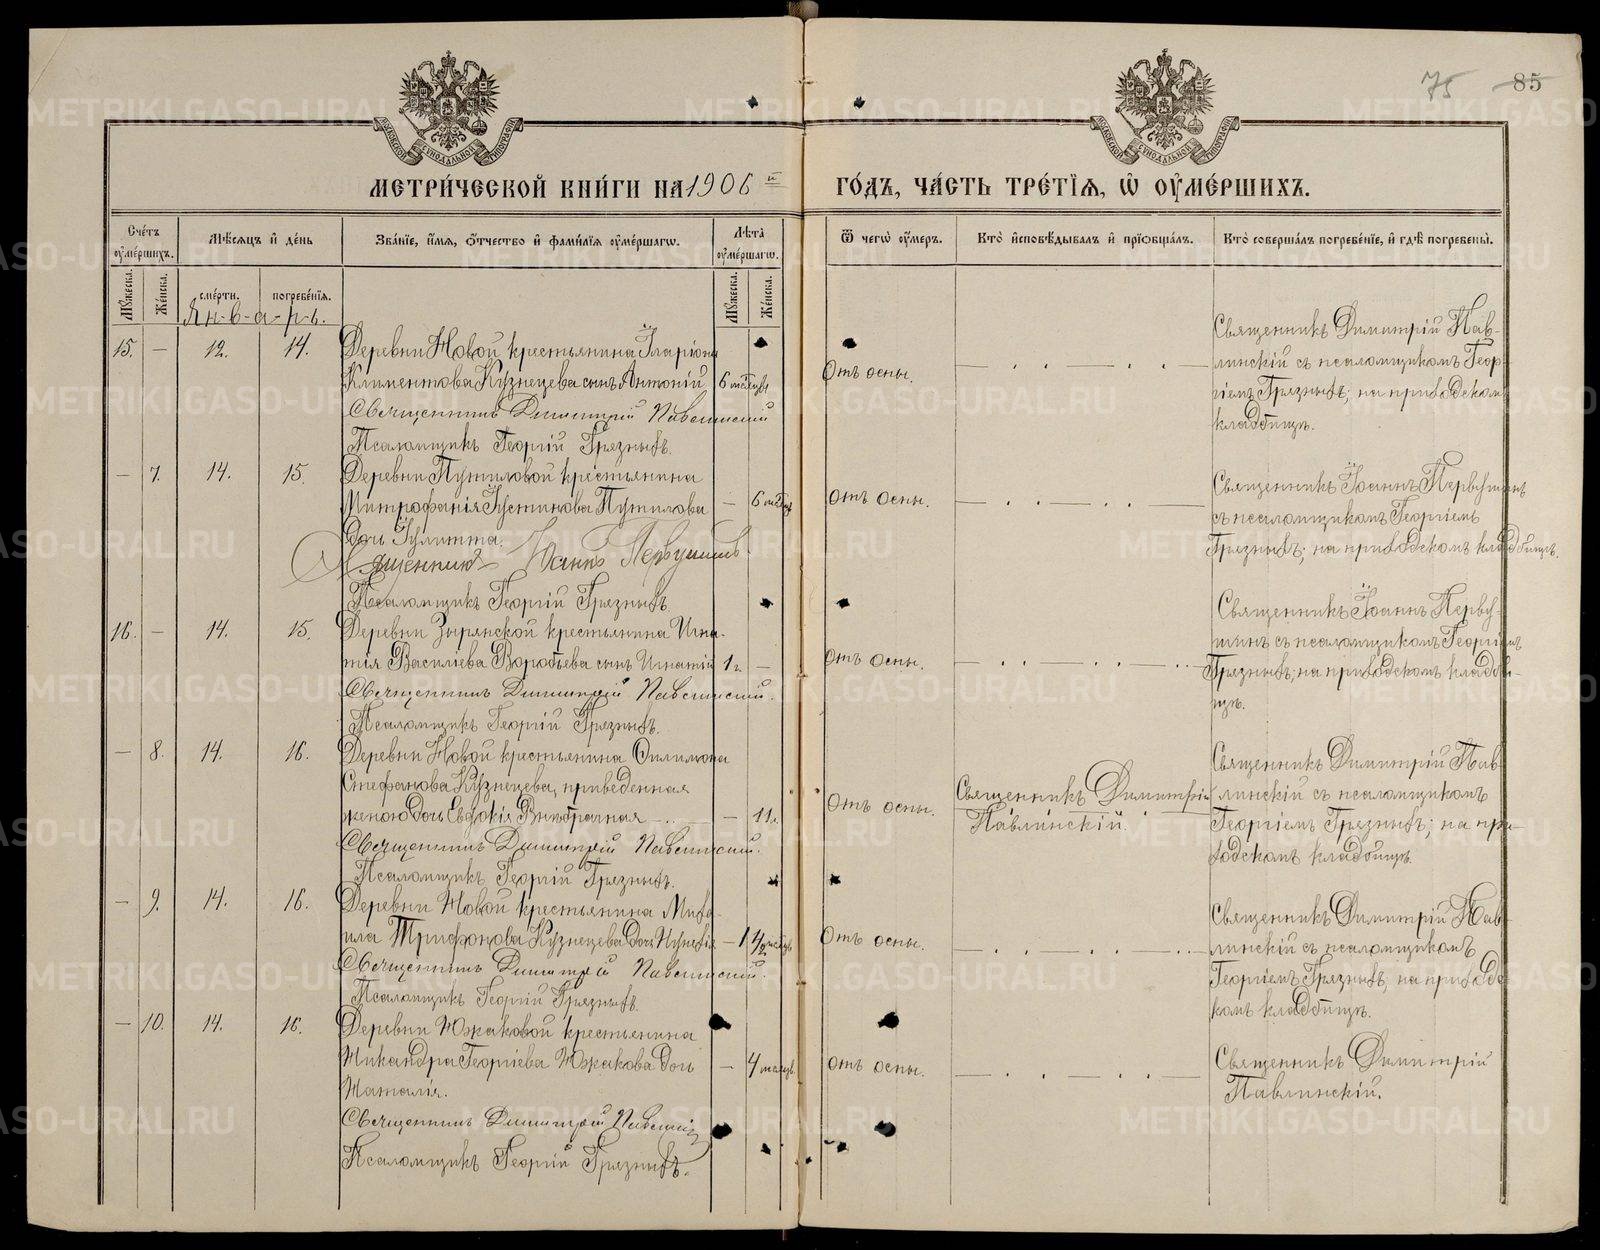 75 85
МОСКОВСКОЙ СѴНОДАЛЬНОЙ ТИПОГРАФІИ
МОСКОВСКОЙ СѴНОДАЛЬНОЙ ТИПОГРАФІИ
МЕТРИ́ЧЕСКОЙ КНИ́ГИ НА 1906 й ГО́ДЪ, ЧА́СТЬ ТРЕ́ТІѦ, Ѡ ОУМЕ́РШИХЪ.
Сче́тъ оумершихъ. Мѣсяцъ и де́нь Зва́ніе, и́мѧ, ѻтчество и фами́лїѧ оуме́ршагѡ. Лѣта̀ оуме́ршагѡ. Ѿ чегѡ̀ оу́меръ. Кто̀ исповѣ́дывалъ и прїѡбща́лъ. Кто̀ соверша́лъ погребе́нїе, и гдѣ̀ погребены̀.
Мꙋ́жеска. Же́нска. сме́рти. погребе́нїѧ. Мꙋ́жеска. Же́нска.
Я-н-в-а-р-ь.
15. — 12. 14. Деревни Новой крестьянина Іларіона
Климентова Кузнецева сынъ Антоній 6 месяцев
Священникъ Димитрій Павлинскій
Псаломщикъ Георгій Грязныхъ.
Отъ оспы.
Священникъ Димитрій Пав-
линскій съ псаломщикомъ Геор-
гіемъ Грязныхъ; на приходском
кладбищѣ.
— 7. 14. 15. Деревни Путиловой крестьянина
Митрофанія Іустинова Путилова — 6 месяц.
дочь Іулитта.
Священникъ Іоаннъ Первушинъ
Псаломщикъ Георгій Грязныхъ.
отъ оспы.
Священникъ Іоаннъ Первушинъ
съ псаломщикомъ Георгіемъ
Грязныхъ; на приходскомъ кладбищѣ.
16. — 14. 15. Деревни Зырянской крестьянина Игна-
тія Василіева Воробьева сынъ Игнатій 1 г. —
Священникъ Димитрій Павлинскій.
Псаломщикъ Георгій Грязныхъ.
отъ оспы.
Священникъ Іоаннъ Перву-
шинъ съ псаломщикомъ Георгіемъ
Грязныхъ; на приходскомъ кладби-
щѣ.
— 8. 14. 16. Деревни Новой крестьянина Филимона
Стефанова Кузнецева, приведенная
женою дочь Евдокія Внѣбрачная — 11 л.
Священникъ Димитрій Павлинскій.
Псаломщикъ Георгій Грязныхъ.
Отъ оспы.
Священникъ Димитрій
Павлинскій.
Священникъ Димитрій Пав-
линскій съ псаломщикомъ
Георгіемъ Грязныхъ; на при-
ходскомъ кладбищѣ.
— 9. 14. 16. Деревни Новой крестьянина Миха-
ила Трифонова Кузнецева дочь —
Священникъ Димитрій Павлинскій.
Псаломщикъ Георгій Грязныхъ.
Отъ оспы.
Священникъ Димитрій Пав-
линскій съ псаломщикомъ
Георгіемъ Грязныхъ; на приходс-
комъ кладбищѣ.
— 10. 14. 16. Деревни Южаковой крестьянина
Никандра Георгіева Южакова дочь — 4 месяц.
Наталія.
Священникъ Димитрій Павлинскій
Псаломщикъ Георгій Грязныхъ.
отъ оспы.
Священникъ Димитрій
Павлинскій.
METRIKI.GASO-URAL.RU